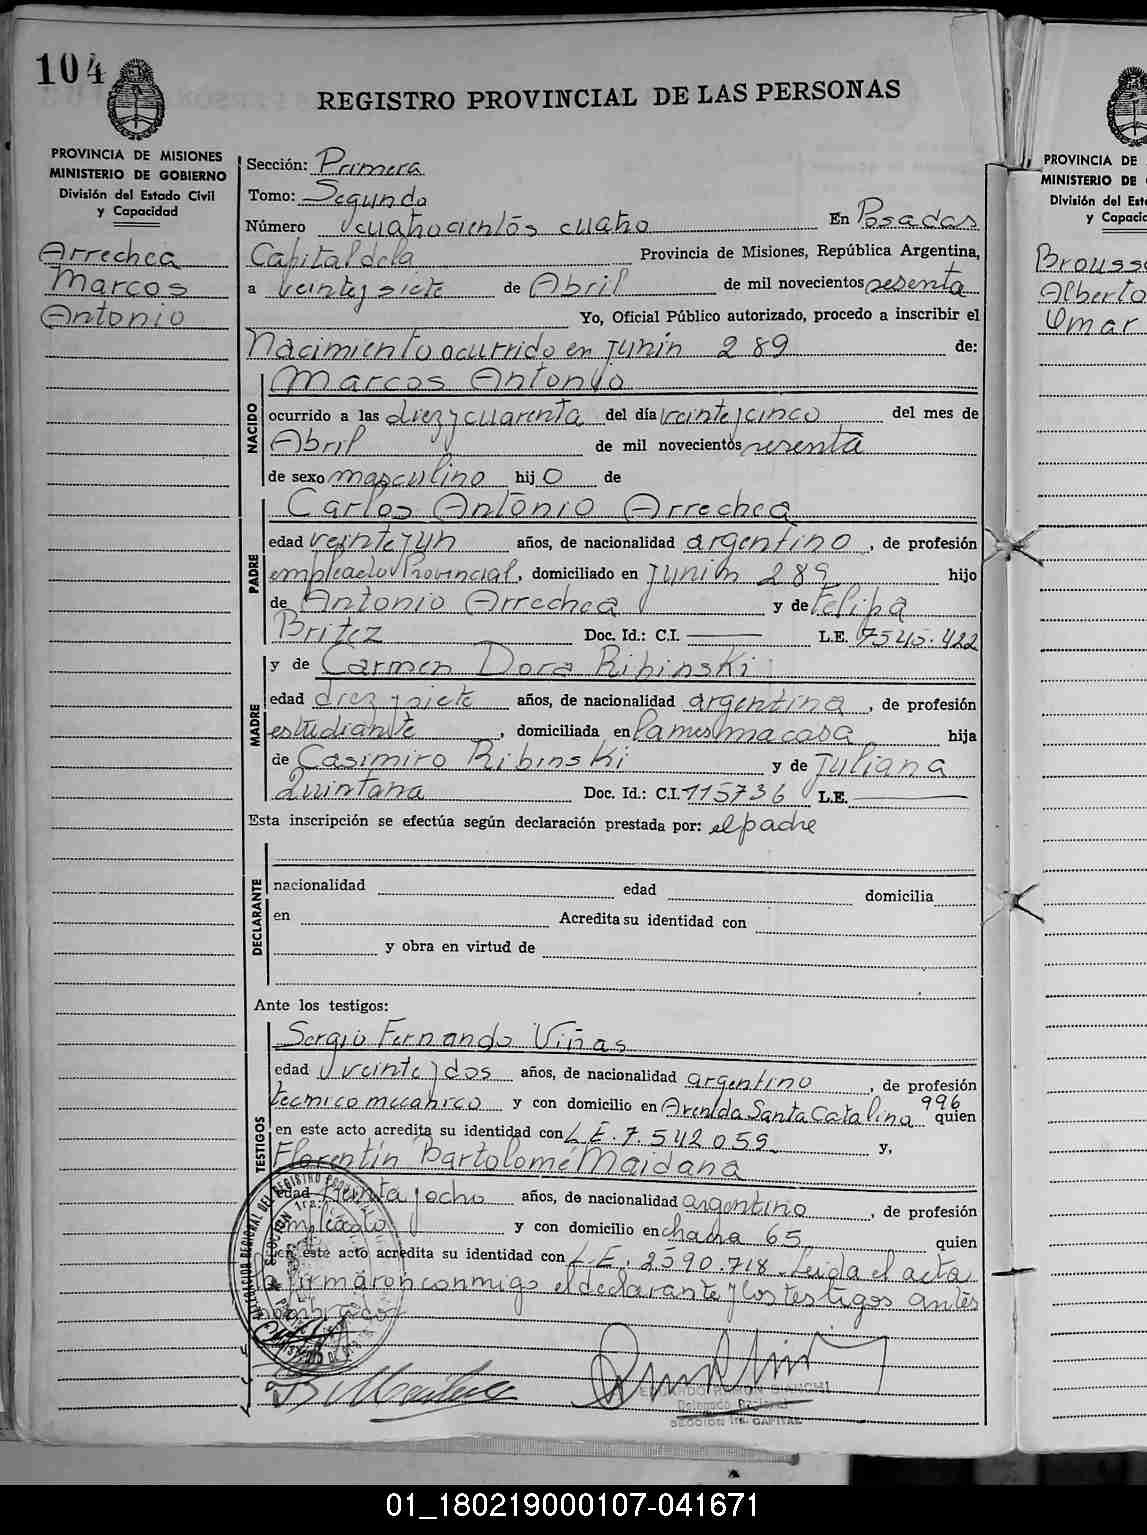 104
REGISTRO PROVINCIAL DE LAS PERSONAS
PROVINCIA DE MISIONES
MINISTERIO DE GOBIERNO
División del Estado Civil
y Capacidad
Arrechea
Marcos
Antonio
Sección: Primera
Tomo: Segundo
Número cuatrocientos cuatro En Posadas
Capital de la Provincia de Misiones, República Argentina,
a veinte y siete de Abril de mil novecientos sesenta
Yo, Oficial Público autorizado, procedo a inscribir el
Nacimiento ocurrido en Junin 289 de:
NACIDO
Marcos Antonio
ocurrido a las diez y cuarenta del día veinte y cinco del mes de
Abril de mil novecientos sesenta
de sexo masculino hijo de
PADRE
Carlos Antonio Arrechea
edad veinte y un años, de nacionalidad argentino, de profesión
empleado Provincial, domiciliado en Junin 289 hijo
de Antonio Arrechea y de Felipa
Britez Doc. Id.: C.I. L.E. 7545.422
MADRE
y de Carmen Dora Ribinski
edad diez y siete años, de nacionalidad argentina, de profesión
estudiante, domiciliada en la misma casa hija
de Casimiro Ribinski y de Juliana
Quintana Doc. Id.: C.I. 115736 L.E.
Esta inscripción se efectúa según declaración prestada por: el padre
DECLARANTE
nacionalidad edad domicilia
en Acredita su identidad con
y obra en virtud de
Ante los testigos:
TESTIGOS
Sergio Fernando Viñas
edad veinte y dos años, de nacionalidad argentino, de profesión
tecnico mecanico y con domicilio en Avenida Santa Catalina 996 quien
en este acto acredita su identidad con L.E. 7.542059 y,
Florentín Bartolomé Maidana
edad treinta y ocho años, de nacionalidad argentino, de profesión
empleado y con domicilio en chacra 65 quien
en este acto acredita su identidad con L.E. 2590.718. Leida el acta
la firmaron conmigo el declarante y los testigos antes
nombrados
EDUARDO RAMON BIANCHI
Delegado Regional
SECCION 1ra. CAPITAL
PROVINCIA DE
MINISTERIO DE
División del Est
y Capacid
Brouss
Alberto
Omar
01_180219000107-041671